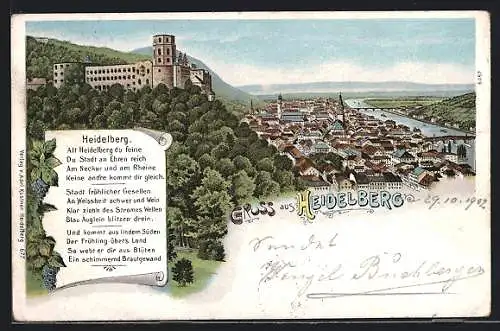 Heidelberg.
Alt Heidelberg du feine
Du Stadt an Ehren reich
Am Neckar und am Rheine
Keine andre kommt dir gleich.
Stadt fröhlicher Gesellen
An Weissheit schwer und Wein
Klar zieh'n des Stromes Wellen
Blau Auglein blitzen drein.
Und kommt aus lindem Süden
Der Frühling über's Land
So webt er dir aus Blüten
Ein schimmernd Brautgewand
GRUSS aus HEIDELBERG
29.10.1902
Sendet
Buchberger
Verlag v. Heidelberg